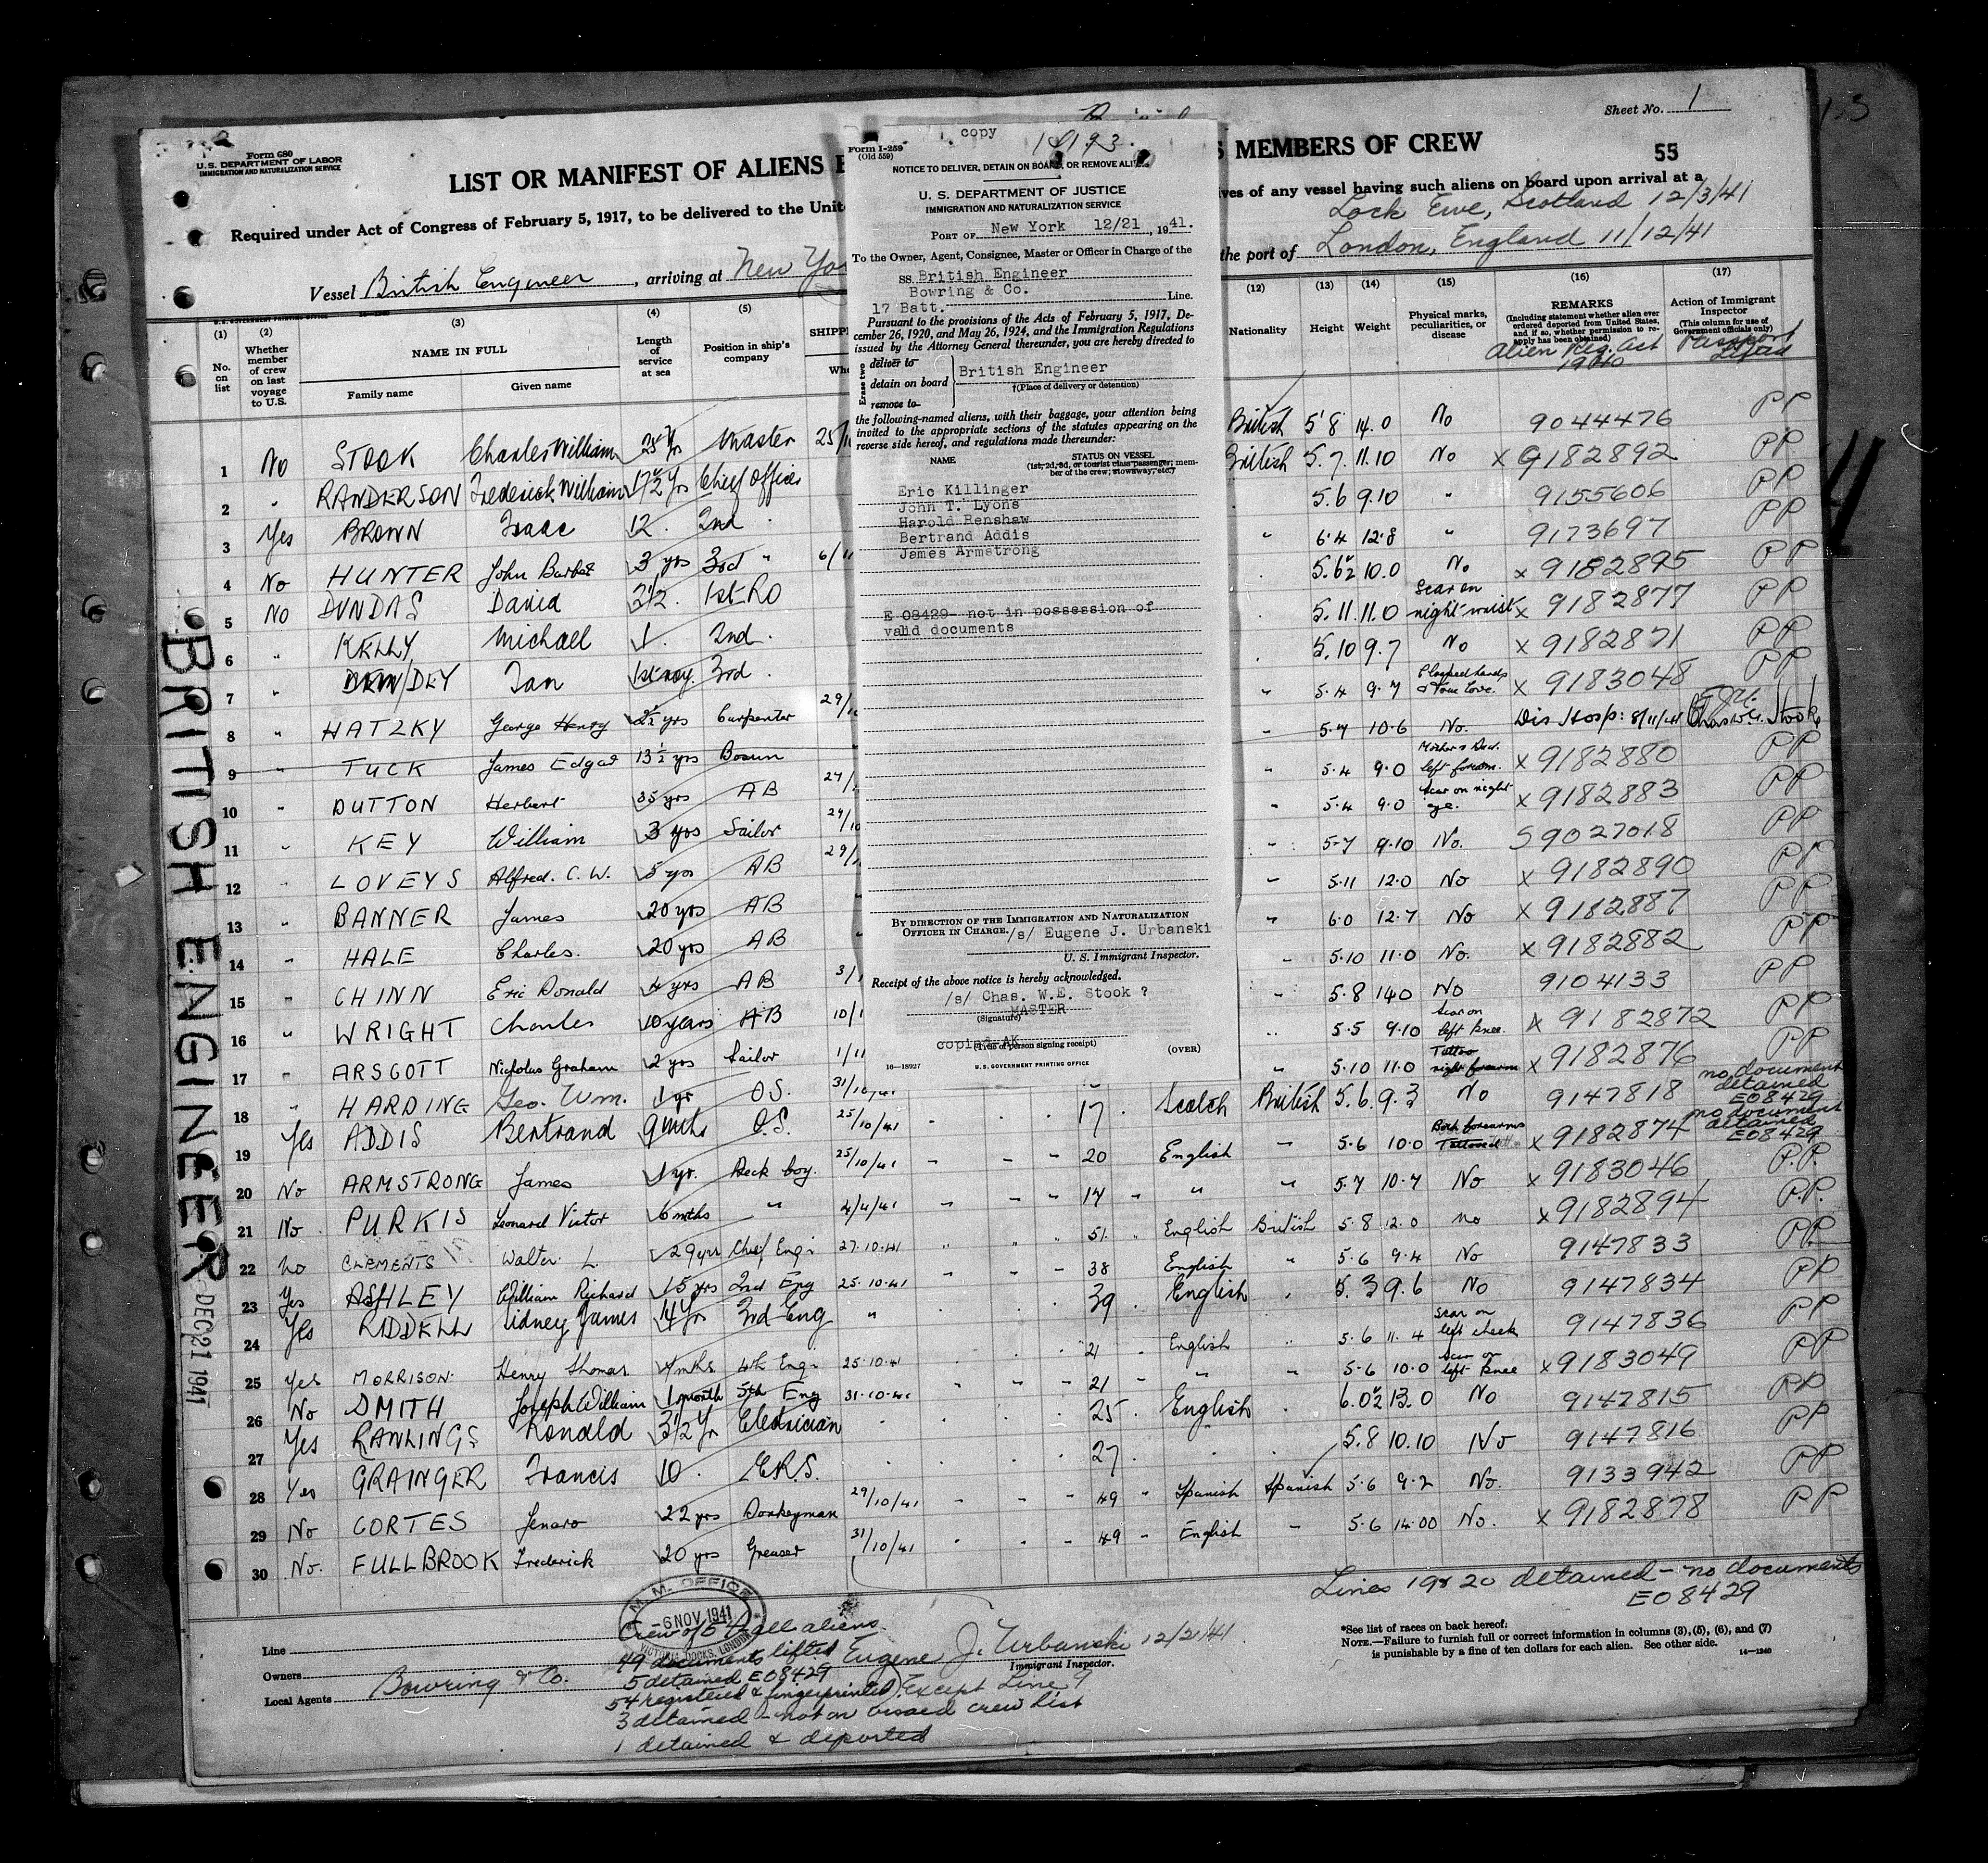 Sheet No. 1
Form 680
U.S. DEPARTMENT OF LABOR
IMMIGRATION AND NATURALIZATION SERVICE
LIST OR MANIFEST OF ALIENS E
S MEMBERS OF CREW
55
Required under Act of Congress of February 5, 1917, to be delivered to the Unit
ives of any vessel having such aliens on board upon arrival at a
Lock Ewe, Scotland 12/3/41
Vessel British Engineer, arriving at New Yo
the port of London, England 11/12/41
(1) (2) (3) (4) (5)
No. on list
Whether member of crew on last voyage to U.S.
NAME IN FULL
Family name Given name
Length of service at sea
Position in ship's company
SHIPP
Whe
(12) (13) (14) (15) (16) (17)
Nationality Height Weight
Physical marks, peculiarities, or disease
REMARKS
(Including statement whether alien ever ordered deported from United States, and if so, whether permission to reapply has been obtained)
Alien Reg. Act 1940
Action of Immigrant Inspector
(This column for use of Government officials only)
Passport
copy
Form I-259
(Old 559)
NOTICE TO DELIVER, DETAIN ON BOARD, OR REMOVE ALIENS
U. S. DEPARTMENT OF JUSTICE
IMMIGRATION AND NATURALIZATION SERVICE
PORT OF New York 12/21, 1941.
To the Owner, Agent, Consignee, Master or Officer in Charge of the
SS British Engineer
Bowring & Co.
17 Batt. Line.
Pursuant to the provisions of the Acts of February 5, 1917, De-
cember 26, 1920, and May 26, 1924, and the Immigration Regulations
issued by the Attorney General thereunder, you are hereby directed to
Erase two
deliver to
detain on board
remove to
British Engineer
†(Place of delivery or detention)
the following-named aliens, with their baggage, your attention being
invited to the appropriate sections of the statutes appearing on the
reverse side hereof, and regulations made thereunder:
NAME STATUS ON VESSEL
(1st, 2d, 3d, or tourist class passenger; mem-
ber of the crew; stowaway, etc.)
Eric Killinger
John T. Lyons
Harold Renshaw
Bertrand Addis
James Armstrong
E 08429- not in possession of
valid documents
BY DIRECTION OF THE IMMIGRATION AND NATURALIZATION
OFFICER IN CHARGE. /s/ Eugene J. Urbanski
U. S. Immigrant Inspector.
Receipt of the above notice is hereby acknowledged.
/s/ Chas. W.E. Stook ?
MASTER
(Signature)
copied AK
(Title of person signing receipt)
(OVER)
16—18927 U.S. GOVERNMENT PRINTING OFFICE
1 No STOOK Charles William 25 yrs Master 25/10 British 5'8 14.0 No 9044476 PP
2 " RANDERSON Frederick William 17½ yrs Chief Officer British 5.7. 11.10 No x 9182892 PP
3 Yes BROWN Isaac 12 . 2nd . 5.6 9.10 " 9155606 PP
4 No HUNTER John 3 yrs 3rd " 6/11 " 6.4 12.8 " 9173697 PP
5 No DUNDAS David 3½ . 1st RO 5.6½ 10.0 No x 9182895 PP
6 " KELLY Michael 1 . 2nd . 5.11. 11.0 Scar on right waist x 9182877 PP
7 " DEY Ian 1st voy. 3rd . 5.10 9.7 No x 9182871 PP
8 " HATZKY George Henry 2½ yrs Carpenter 29/10 " 5.4 9.7 Clasped hands & True Love. x 9183048 PP
9 " TUCK James Edgar 13½ yrs Bosun " 5.7 10.6 No. Dis Hosp: 8/11/41 Chas W.E. Stook
10 " DUTTON Herbert 35 yrs AB 27/ " 5.4 9.0 left forearm. x 9182880 PP
11 " KEY William 3 yrs Sailor 29/10 " 5.4 9.0 Scar on right eye. x 9182883 PP
12 " LOVEYS Alfred. C. W. 5 yrs AB 29/ " 5.7 9.10 No. S 9027018 PP
13 " BANNER James 20 yrs AB " 5.11 12.0 No x 9182890 PP
14 " HALE Charles. 20 yrs AB " 6.0 12.7 No x 9182887 PP
15 " CHINN Eric Donald 4 yrs AB 3/1 " 5.10 11.0 No. x 9182882 PP
16 " WRIGHT Charles 10 years AB 10/1 " 5.8 14.0 No 9104133 PP
17 " ARSCOTT Nicholas Graham 2 yrs Sailor 1/11 " 5.5 9.10 Scar on left knee. x 9182872 PP
18 " HARDING Geo. Wm. 1 yr O.S. 31/10/41 " 5.10 11.0 Tattoo right forearm x 9182876 PP
19 Yes ADDIS Bertrand 9 mths O.S. 25/10/41 " . . 17 . Scotch British 5.6. 9.3 No 9147818 no document detained E08429
20 No ARMSTRONG James 1 yr. Deck boy. 25/10/41 " " " 20 English " 5.6 10.0 Both forearms Tattooed x 9182874 no document detained E08429
21 No PURKIS Leonard Victor 6 mths " 4/11/41 " " " 17 " " " 5.7 10.7 No x 9183046 P.P.
22 No CLEMENTS Walter L 29 yrs Chief Eng. 27.10.41 " " " 51. " English British 5.8 12.0 No x 9182894 P.P.
23 Yes ASHLEY William Richard 15 yrs 2nd Eng 25.10.41 " " " 38 English " 5.6 9.4 No 9147833 PP
24 Yes RIDDELL Sidney James 14 Yr 3rd Eng " . . . 39 . English . 5.3 9.6 No 9147834 PP
25 Yes MORRISON. Henry Thomas 4 mths 4th Eng. 25.10.41 . . . 21 . English " 5.6 11.4 Scar on left cheek 9147836 PP
26 No SMITH Joseph William 1 month 5th Eng 31.10.41 " " " 21 " " " 5.6 10.0 Scar on left knee x 9183049 PP
27 Yes RAWLINGS Ronald 3½ Yr Electrician . . . . 25 . English . 6.0½ 13.0 No 9147815 PP
28 Yes GRAINGER Francis 10 . E.R.S. . . . . 27 . . . 5.8 10.10 No 9147816 PP
29 No CORTES Jenaro 22 yrs Donkeyman 29/10/41 " " " 49 " Spanish Spanish 5.6 9.2 No. 9133942 PP
30 No. FULLBROOK Frederick 20 yrs Greaser 31/10/41 " " " 49 " English " 5.6 14.00 No. x 9182878 PP
BRITISH ENGINEER
DEC 21 1941
Lines 19 & 20 detained - no documents
E08429
M.M. OFFICE
-6 NOV 1941
VICTORIA DOCKS, LONDON
Line
Owners
Local Agents Bowring & Co.
Crew of 54 all aliens.
49 documents lifted
5 detained E08429
54 registered & fingerprinted Except Line 9
3 detained - not on visaed crew list
1 detained & deported
Eugene J. Urbanski 12/21/41.
Immigrant Inspector.
*See list of races on back hereof.
NOTE.—Failure to furnish full or correct information in columns (3), (5), (6), and (7)
is punishable by a fine of ten dollars for each alien. See other side.
14—1240